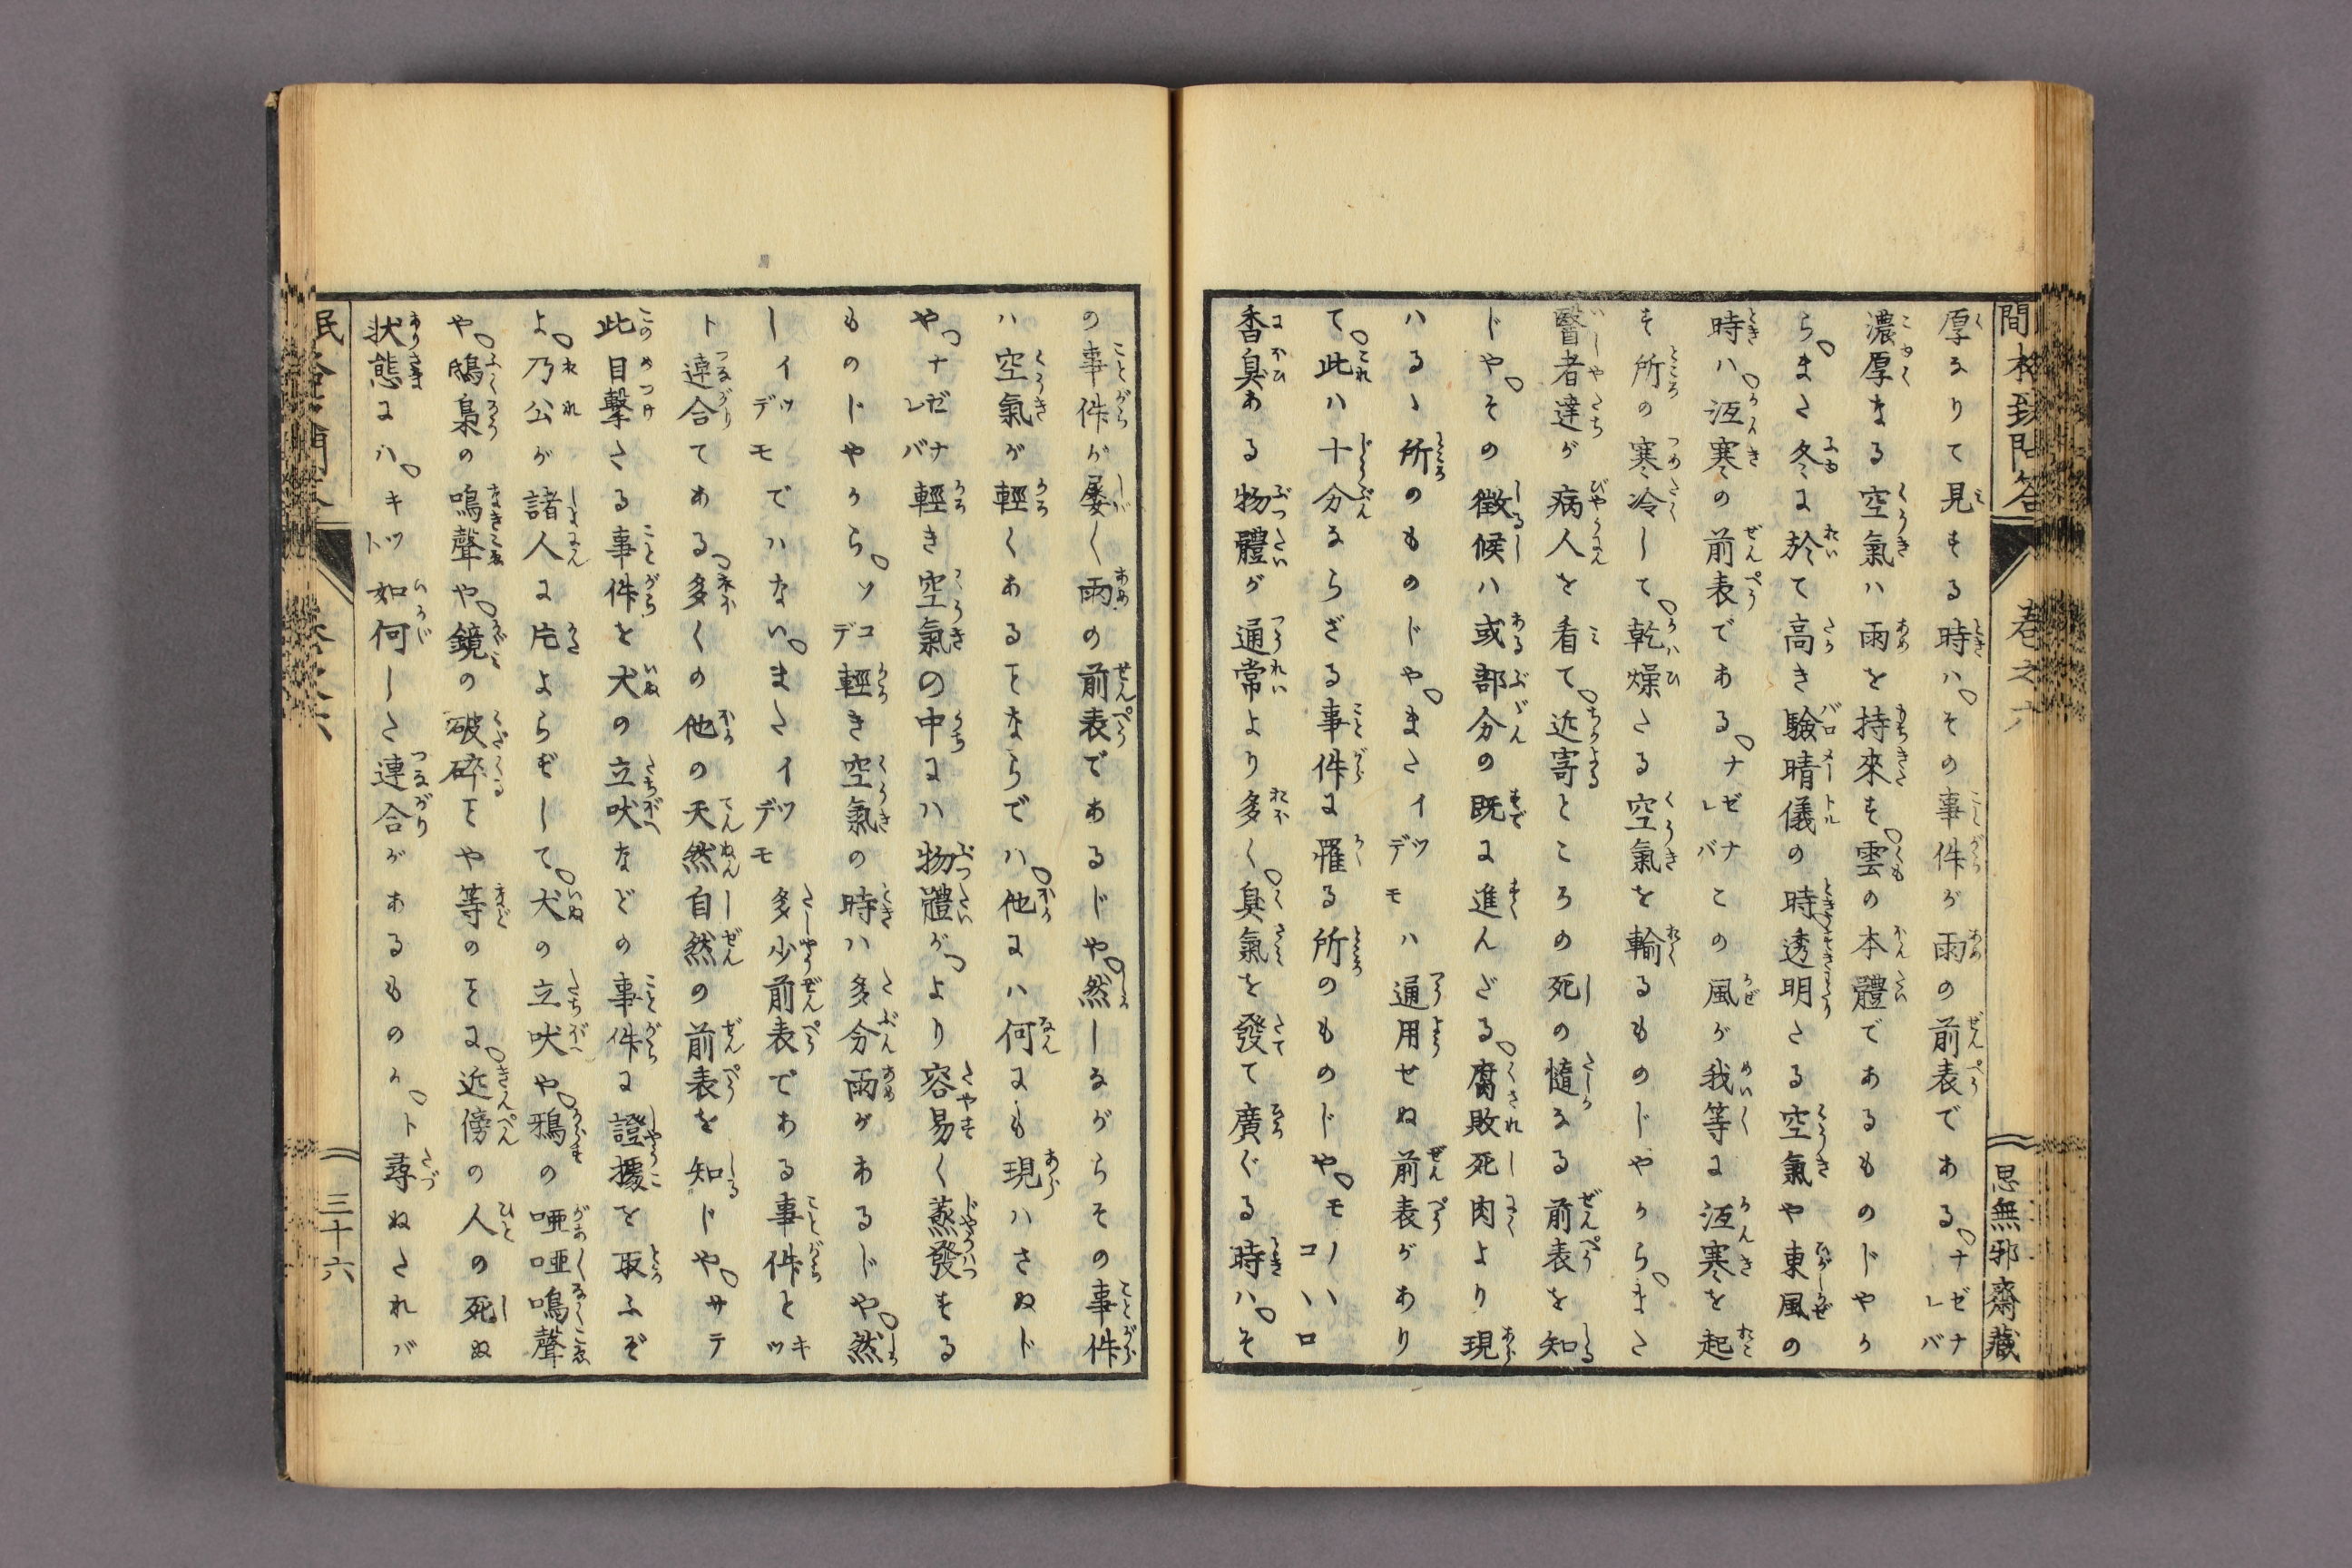 厚るりて見する時ハ。その事件が雨の前表である。ナゼナレバ
濃厚なる空氣ハ雨を持來す。雲の本體であるものじやか
ら。また冬に於て高き驗晴儀の時。透明たる空氣や東風の
時ハ。冱寒の前表である。ナゼナレバこの風が我等に冱寒を起
す所の寒冷して。乾燥たる空氣を輸るものじやから。また
醫者達が病人を看て。近寄ところの死の慥なる前表を知
じや。その徴候ハ或部分の既に進んざる。腐敗死肉より現
ハるゝ所のものじや。またイツデモハ通用せぬ前表があり
て。此ハ十分ならざる事件に罹る所のものじや。モノハイロコ
香臭ある物體が通常より多く。臭氣を發て廣ぐる時ハ。そ
思無邪齋藏
の事件が屡く雨の前表であるじや。然しながらその事件
ハ空氣が輕くあるをならでハ。他にハ何にも現ハさぬド
や。ナゼナレバ輕き空氣の中にハ物體が。より容易く蒸發する
ものじやから。ソコデ輕き空氣の時ハ多分雨があるじや。然
しイツデモでハない。またイツデモ多少前表である事件とキツ
ト連合てある。多くの他の天然自然の前表を知じや。サテ
此目撃たる事件を犬の立吠などの事件に證據を取ふぞ
よ。乃公が諸人に片よらずして。犬の立吠や。鴉の唖唖鳴聲
や。鴟梟の鳴聲や。鏡の破碎をや等のをに。近傍の人の死ぬ
状態にハ。キツト如何した連合があるものか。ト尋ぬたれバ
三十六